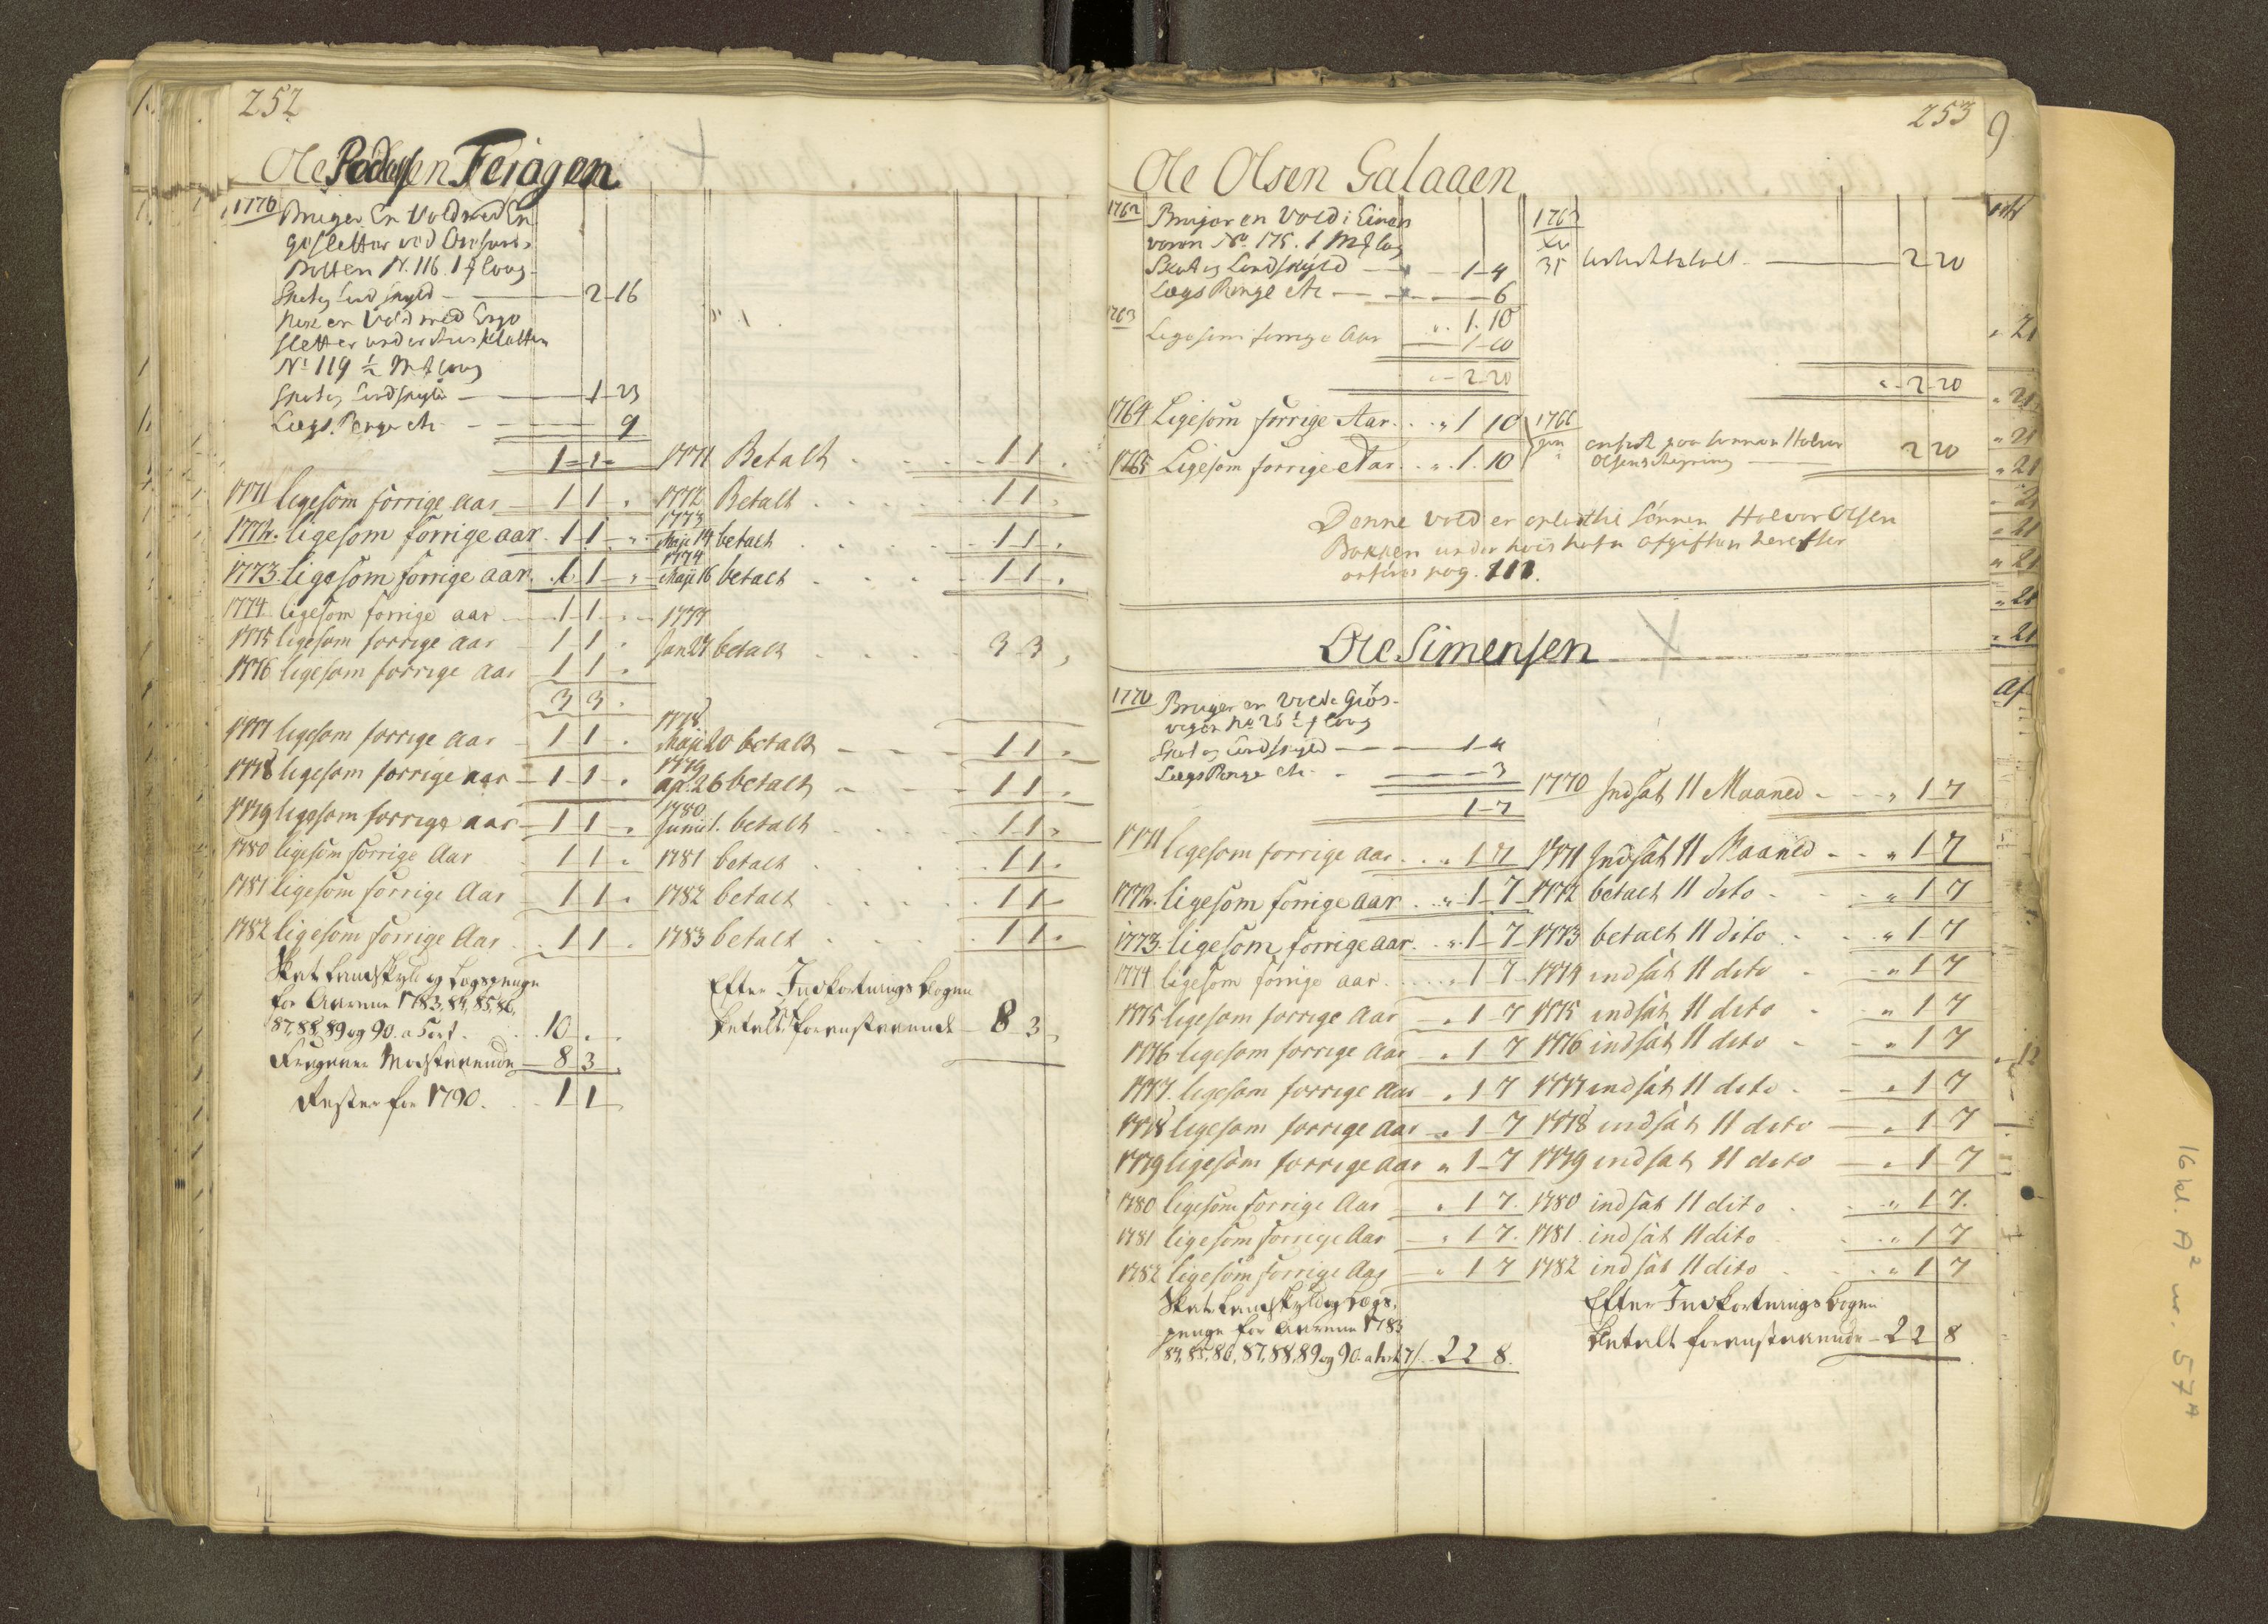 252
Ole Pedersen Feragen
1770 Bruger En Vold med En
geslætter ved
Volten N. 116. 1 f laug
Skat og Landskyld — 2 - 16
Nok en Vold med Enge
sletter under
No 119 ½ M f laug
Skat og Landskyld — 1 - 23
Laugs Penge etc — 9
1 - 1 -
1771 Betalt . . . 1 1 .
1771 ligesom forrige aar — 1 1 . 1772 Betalt . . . 1 1 .
1772. ligesom forrige aar . 1 1 - 1773 Maji 14 betalt . . . 1 1 .
1773. ligesom forrige aar . 1 1 - 1774 Maji 16 betalt . . . 1 1 .
1774 ligesom forrige aar — 1 - 1 - 1777
1775 ligesom forrige aar — 1 1 . Jan 27 betalt . . . 3 3 ,
1776 ligesom forrige aar — 1 1 .
3 3 .
1777 ligesom forrige aar — 1 1 . 1778 Maji 20 betalt — 1 1 .
1778 ligesom forrige aar — 1 - 1 - . 1779 ap. 26 betalt — 1 1 .
1779 ligesom forrige aar — 1 1 . 1780 Junii 1. betalt . . . 1 1 .
1780 ligesom forrige Aar 1 1 . 1781 betalt . . . 1 1 .
1781 ligesom forrige Aar — 1 1 . 1782 betalt . . . 1 1 -
1782 ligesom forrige Aar . . 1 1 . 1783 betalt . . . 1 1 .
Skat Landskyld og Logspenge
for Aarene 1783, 84, 85, 86,
87, 88, 89 og 90. a 5 ort . . 10 . .
Fragaaer Modstaaende — 8 3 .
Rester for 1790 . . 1 1
Efter Indkortnings bogen
betalt foranstaaende — 8 3 .
253
Ole Olsen Galaaen
1762 Bruger en Vold i Einer
No. 175. 1 M f laug
Skat og Landskyld — 1 - 4
Laugs Penge etc — 6
" 1. 10
1763 Ligesom forrige Aar 1 - 10
" - 2 - 20
1763
35 betalt — 2 20
" - 2 - 20
1764 Ligesom forrige Aar . . " 1 10
1765 Ligesom forrige Aar . . " . 1. 10
1766 anført paa Sønnen Halvor
Olsens Regning — 2 20
Denne Vold er opladt til Sønnen Halvor Olsen
Bakken under hvis Nafn Afgiften herefter
anføres pag. 111.
Ole Simensen
1770 Bruger en Vold i Grøs-
vigen No 26 ½ f laug
Skat og Landskyld — 1 - 4
Laugs Penge etc. — 3
1 - 7
1770 Indsat 11 Maaned — " 1 7
1771 ligesom forrige aar . . " 1 7 1771 Indsat 11 Maaned — " 1 - 7
1772. ligesom forrige aar . . " 1 - 7 1772 betalt 11 dito — " 1 - 7
1773. ligesom forrige aar . . " 1 - 7 1773 betalt 11 dito . " 1 - 7
1774 ligesom forrige aar . . " 1 7 1774 indsat 11 dito — " 1 7
1775 ligesom forrige Aar " 1 7 1775 indsat 11 dito " 1 7
1776 ligesom forrige Aar " 1 7 1776 indsat 11 dito " 1 7
1777. ligesom forrige Aar " 1 7 1777 indsat 11 dito " 1 7
1778 ligesom forrige Aar " 1 - 7 1778 indsat 11 dito — " 1 7
1779 ligesom forrige Aar " 1 - 7 1779 indsat 11 dito — " 1 - 7
1780 ligesom forrige Aar — " 1 7. 1780 indsat 11 dito . " 1 7.
1781 ligesom forrige Aar — " 1 7. 1781 indsat 11 dito . " 1 7
1782 ligesom forrige Aar — " 1 7 1782 indsat 11 dito . " 1 7
Skat Landskyld og Logs-
penge for Aarene 1783
84, 85, 86, 87, 88, 89 og 90. a 1 ort 7 s. 2 2 8.
Efter Indkortnings bogen
betalt foranstaaende — 2 2 8
16 kl. A² nr. 57 A